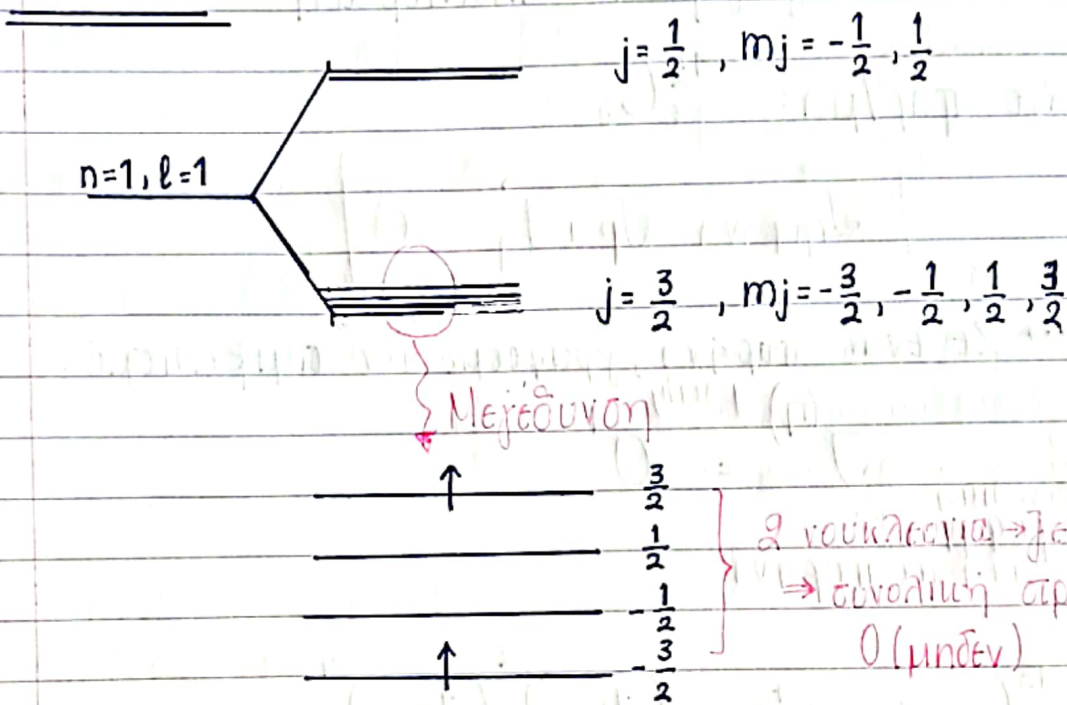 j = 1/2 , mj = -1/2 , 1/2
n=1, l=1
j = 3/2 , mj = -3/2, -1/2 , 1/2 , 3/2
Μεγέθυνση
3/2
1/2
2 νουκλεόνια →
-1/2
⇒ συνολική
0 (μηδέν)
-3/2